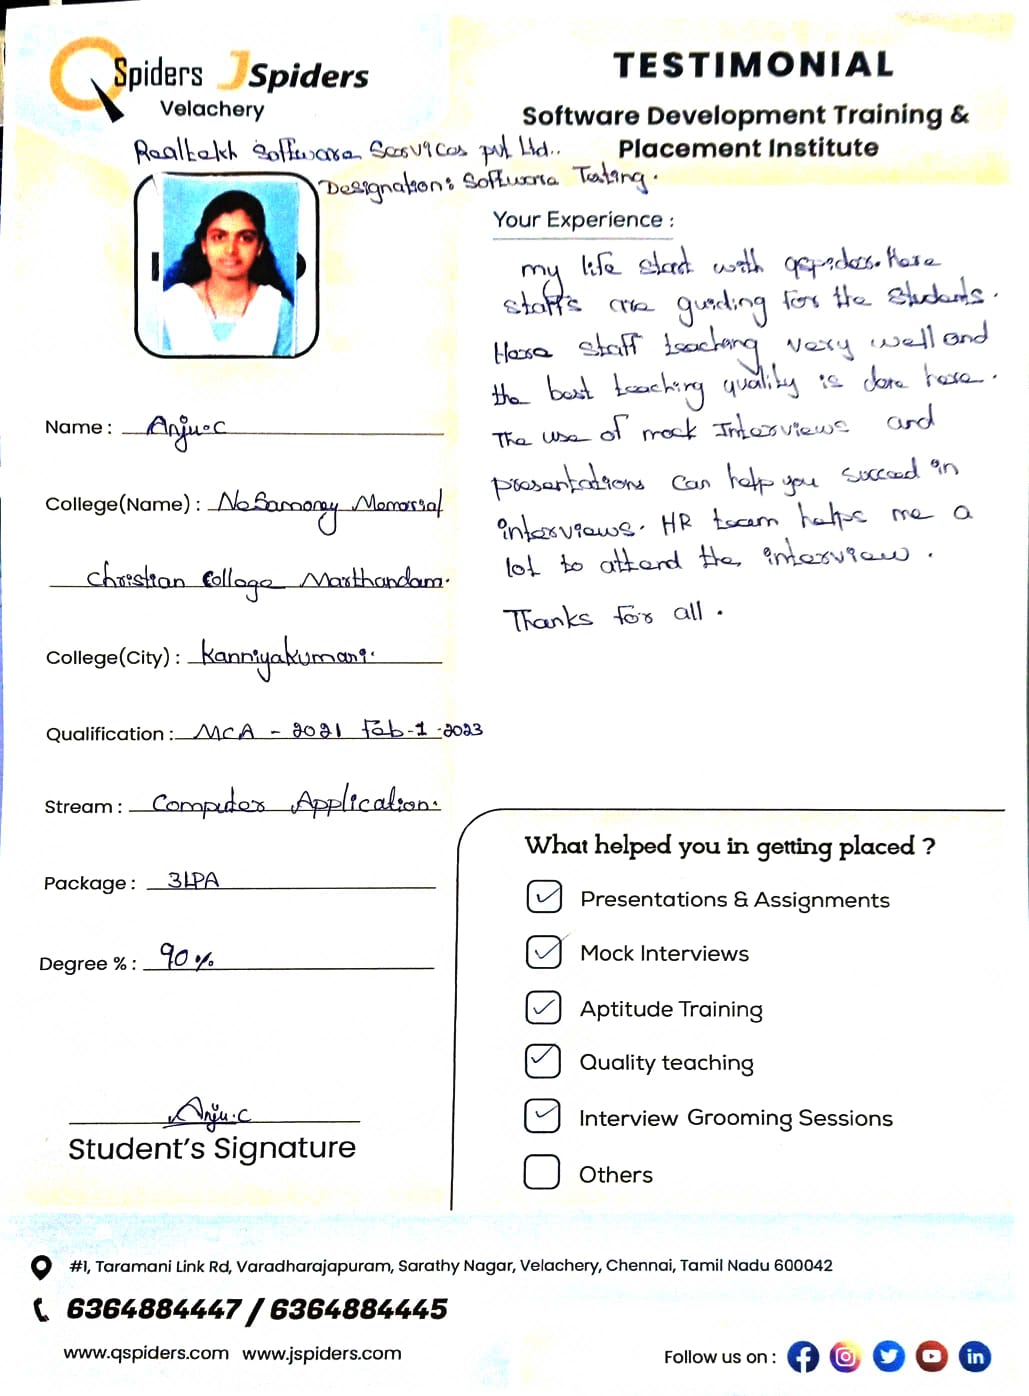 QSpiders JSpiders
Velachery
TESTIMONIAL
Software Development Training &
Placement Institute
Realtekh Software Services pvt Ltd..
Designation: Software Testing.
Name : Anju.C
College(Name) : Nesamony Memorial
Christian College Marthandam.
College(City) : Kanniyakumari.
Qualification : MCA - 2021 Feb-1-2023
Stream : Computer Application.
Package : 3LPA
Degree % : 90%
Anju.C
Student's Signature
Your Experience :
my life start with qspiders. Here
staffs are guiding for the students.
Here staff teaching very well and
the best teaching quality is done here.
The use of mock Interviews and
presentations can help you succeed in
interviews. HR team helps me a
lot to attend the interview.
Thanks for all.
What helped you in getting placed ?
Presentations & Assignments
Mock Interviews
Aptitude Training
Quality teaching
Interview Grooming Sessions
Others
#1, Taramani Link Rd, Varadharajapuram, Sarathy Nagar, Velachery, Chennai, Tamil Nadu 600042
6364884447 / 6364884445
www.qspiders.com www.jspiders.com
Follow us on :